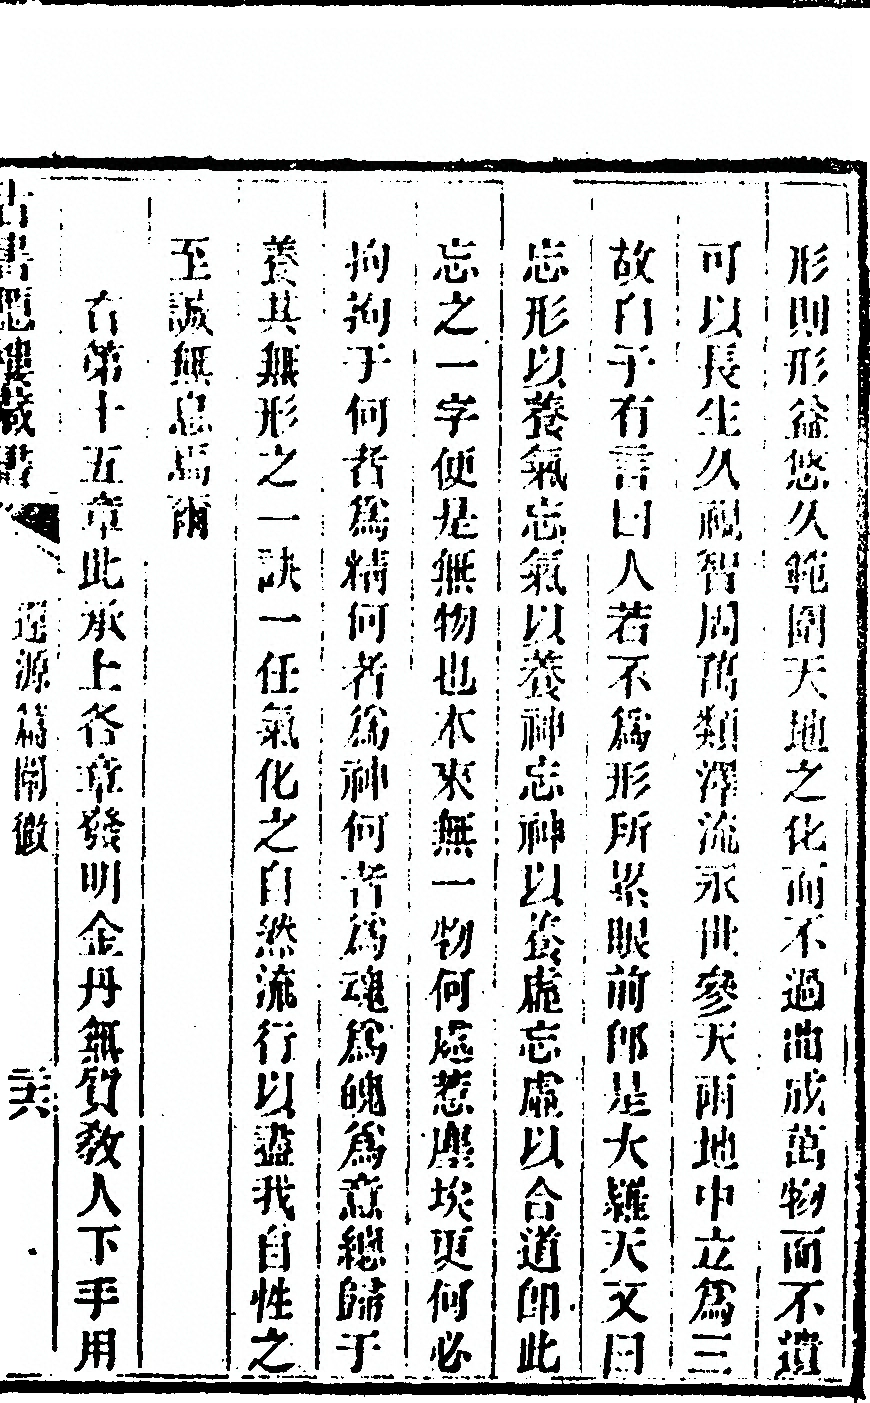 形則形益悠久範圍天地之化而不過曲成萬物而不遺
可以長生久視智周萬類澤流永世參天兩地中立爲三
故白子有言曰人若不爲形所累眼前即是大羅天又曰
忘形以養氣忘氣以養神忘神以養虛忘虛以合道即此
忘之一字便是無物也本來無一物何處惹塵埃更何必
拘拘于何者爲精何者爲神何者爲魂爲魄爲意總歸于
養其無形之一訣一任氣化之自然流行以盡我自性之
至誠無息焉爾
右第十五章此承上各章發明金丹無質敎人下手用
古書隱樓藏書
還源篇闡微
二六